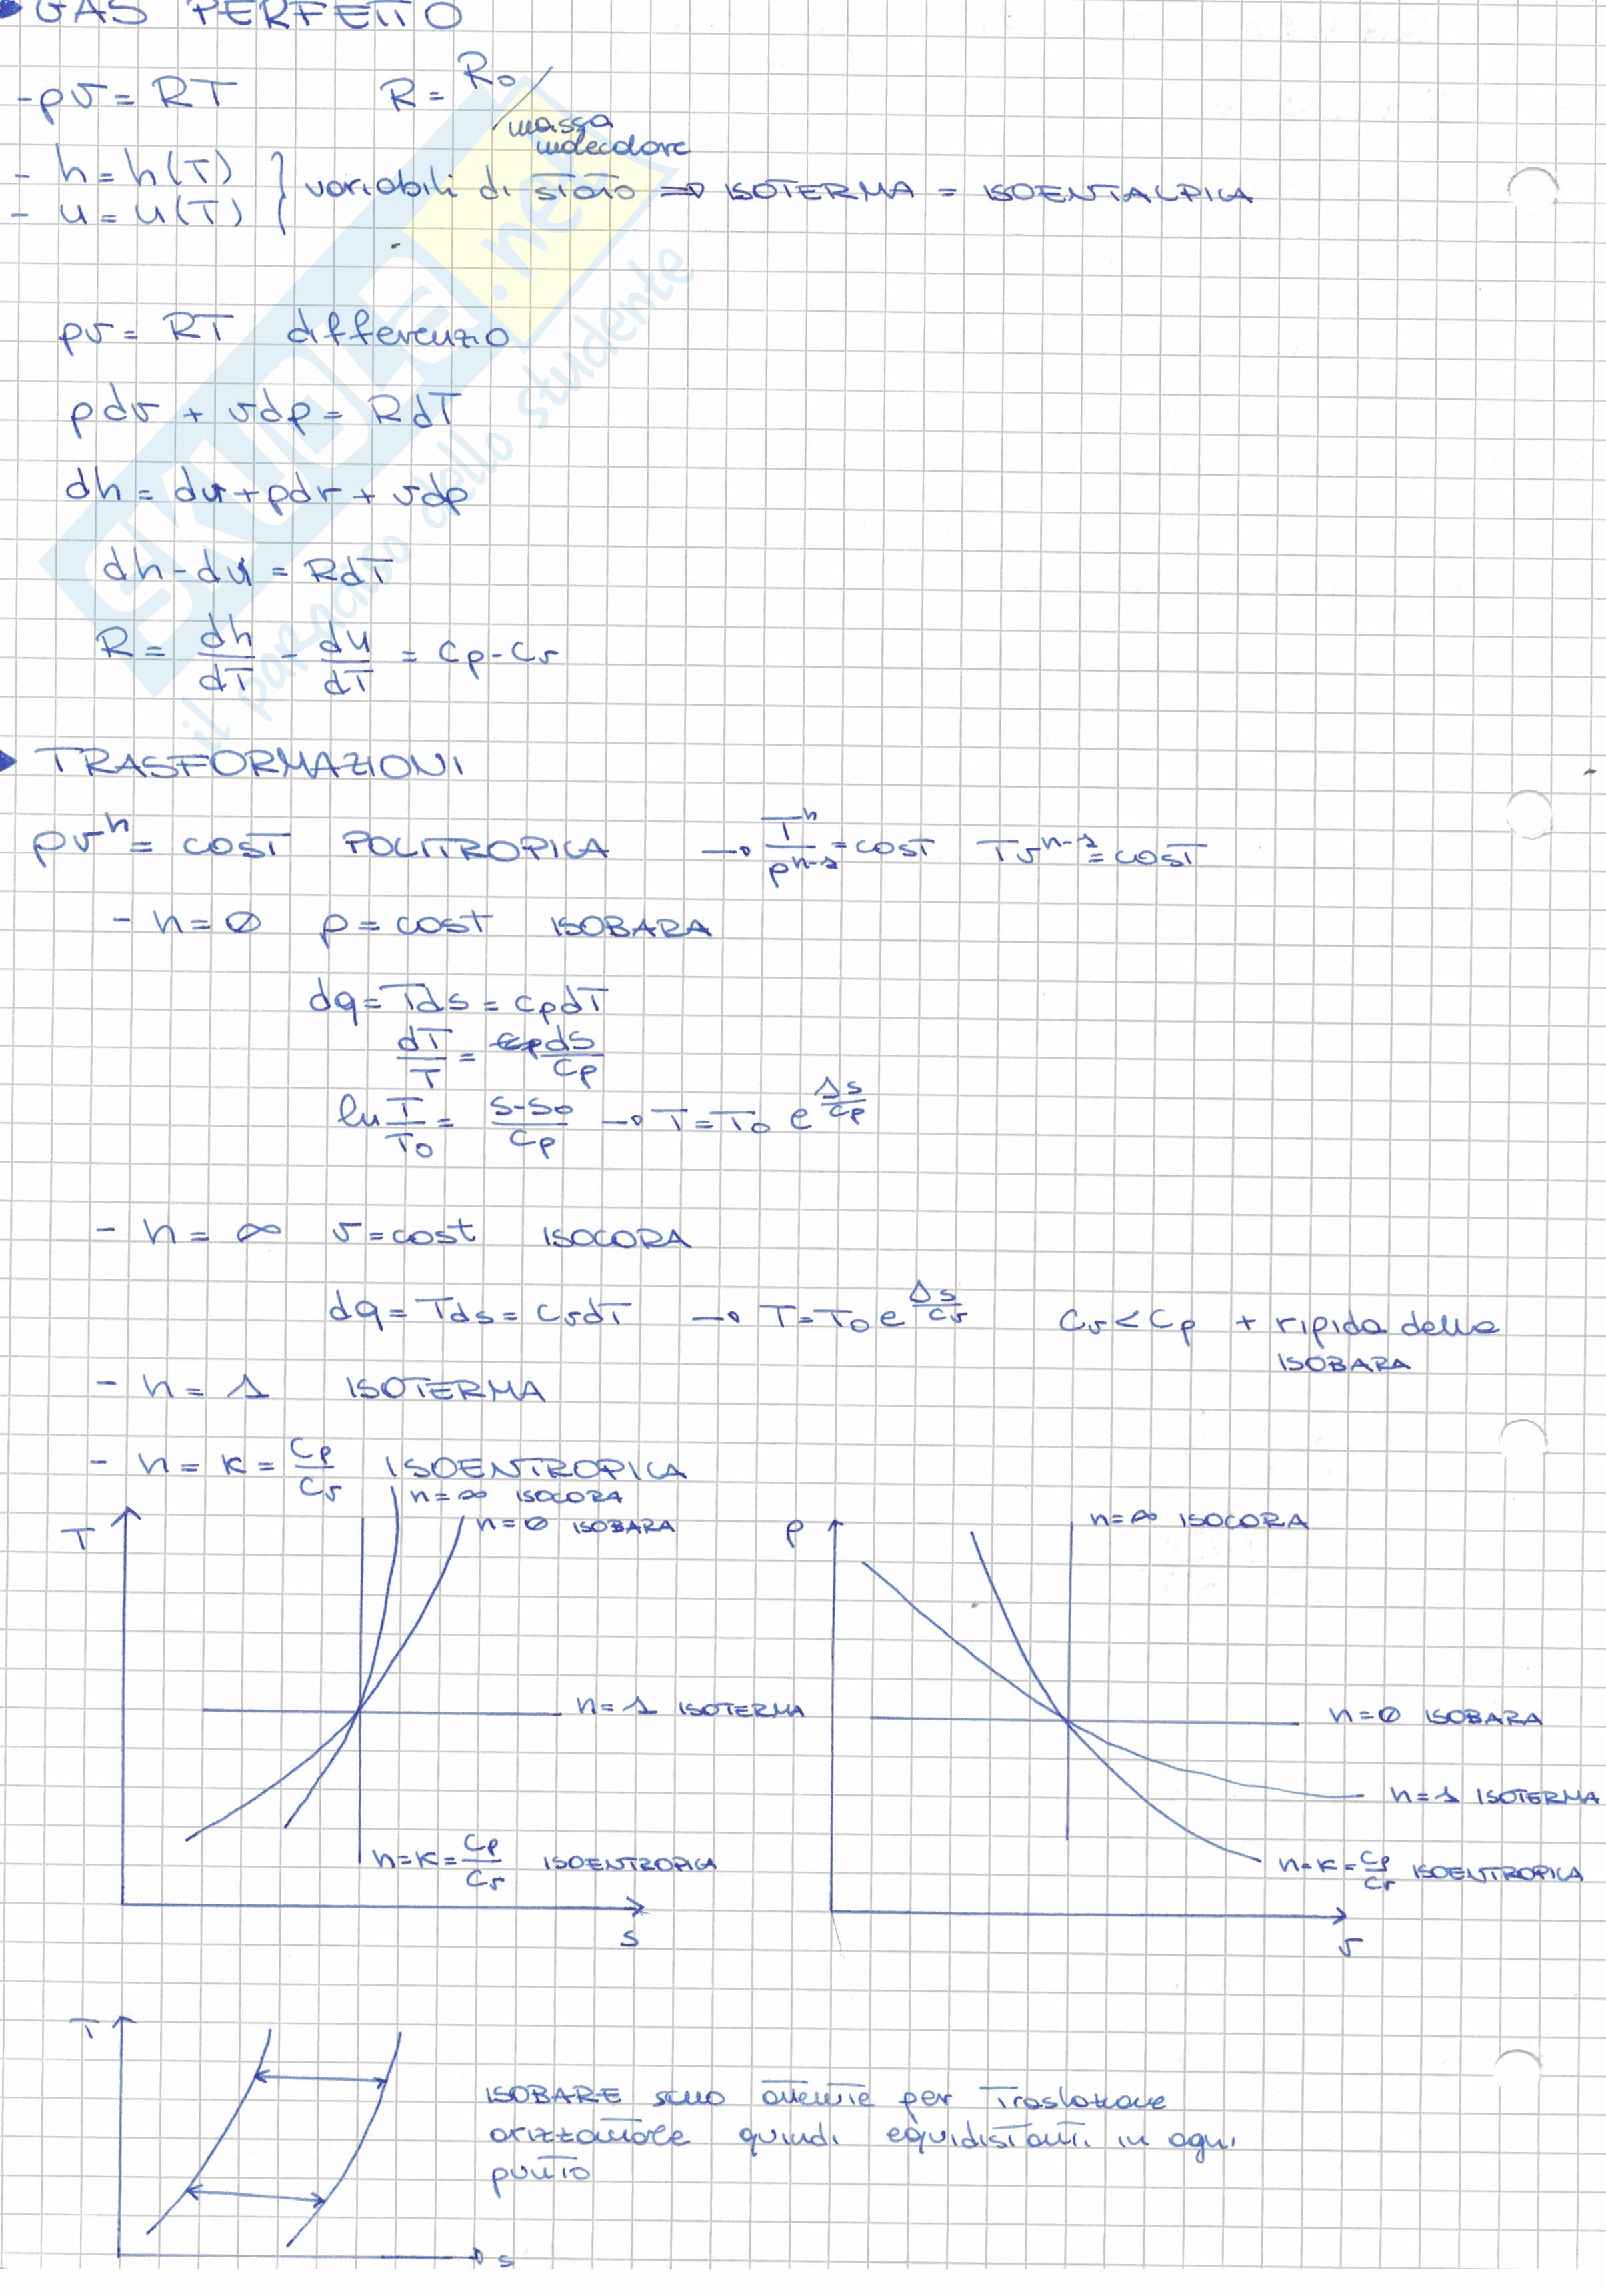 ▸ GAS PERFETTO
- pv = RT R = R₀/massa molecolare
- h = h(T)
- u = u(T) } variabili di stato ⇒ ISOTERMA = ISOENTALPICA
pv = RT differenzio
pdv + vdp = RdT
dh = du + pdv + vdp
dh - du = RdT
R = dh/dT - du/dT = cp - cv
▸ TRASFORMAZIONI
pvⁿ = COST POLITROPICA → Tⁿ/pⁿ⁻¹ = COST Tvⁿ⁻¹ = COST
- n = 0 p = cost ISOBARA
dq = Tds = cpdT
dT/T = ds/cp
ln T/T₀ = s-s₀/cp → T = T₀ e^Δs/cp
- n = ∞ v = cost ISOCORA
dq = Tds = cvdT → T = T₀ e^Δs/cv cv < cp + ripida della
ISOBARA
- n = 1 ISOTERMA
- n = K = cp/cv ISOENTROPICA
n = ∞ ISOCORA
n = 0 ISOBARA
T
n = 1 ISOTERMA
n = K = cp/cv ISOENTROPICA
s
p
n = ∞ ISOCORA
n = 0 ISOBARA
n = 1 ISOTERMA
n = K = cp/cv ISOENTROPICA
v
T
ISOBARE sono ottenute per traslazione
orizzontale quindi equidistanti in ogni
punto
s
SKUOLA.net
il paradiso dello studente